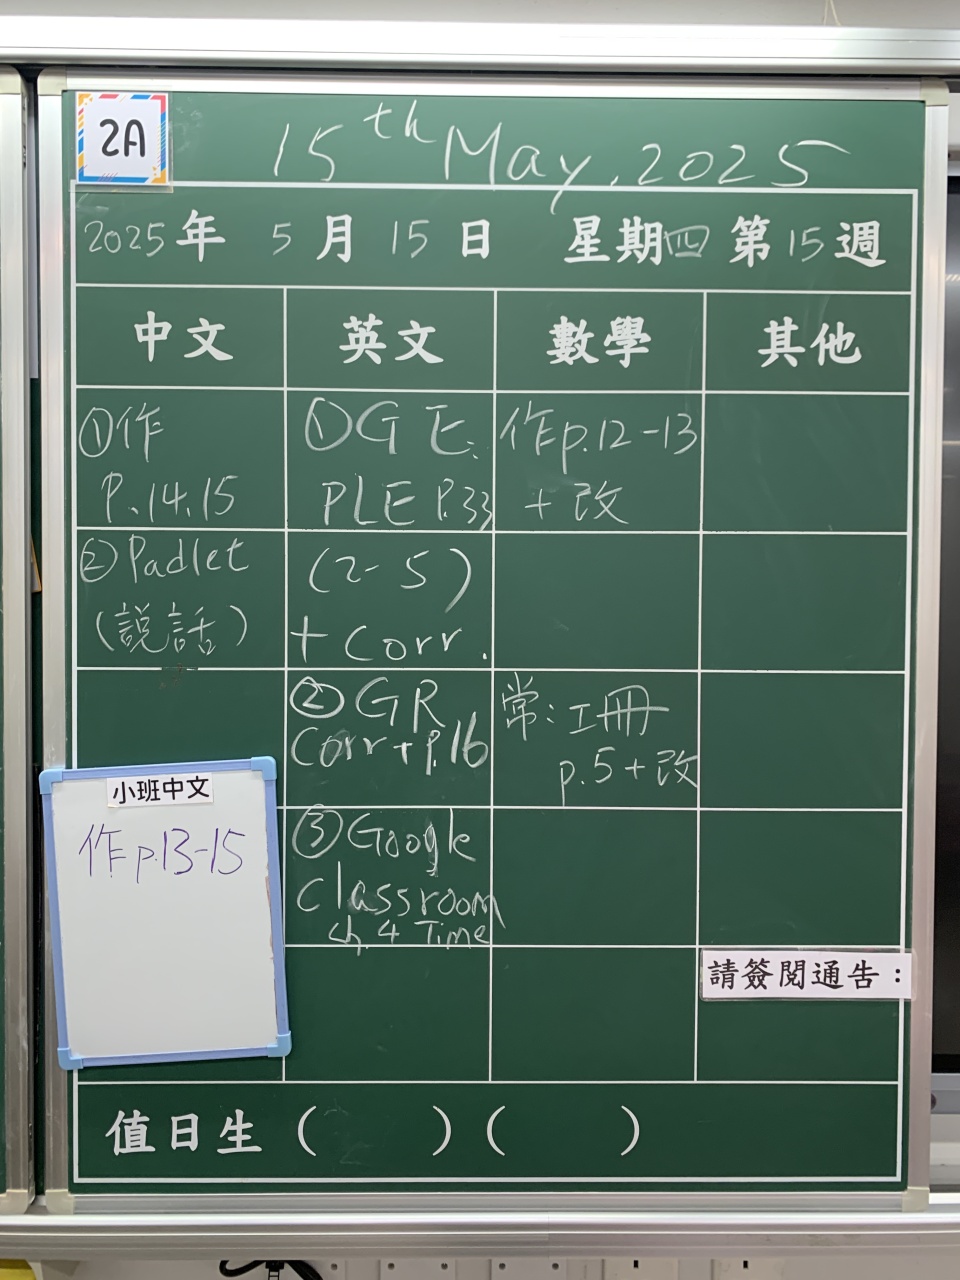 2A
15th May, 2025
2025年 5月15日 星期四 第15週
中文 英文 數學 其他
①作
P.14.15
②Padlet
(説話)
小班中文
作p.13-15
①GE:
PLE P.33
(2-5)
+ Corr.
②GR
Corr + p.16
③Google
Classroom
ch.4 Time
作p.12-13
+改
常:工冊
p.5+改
請簽閱通告:
值日生 ( ) ( )